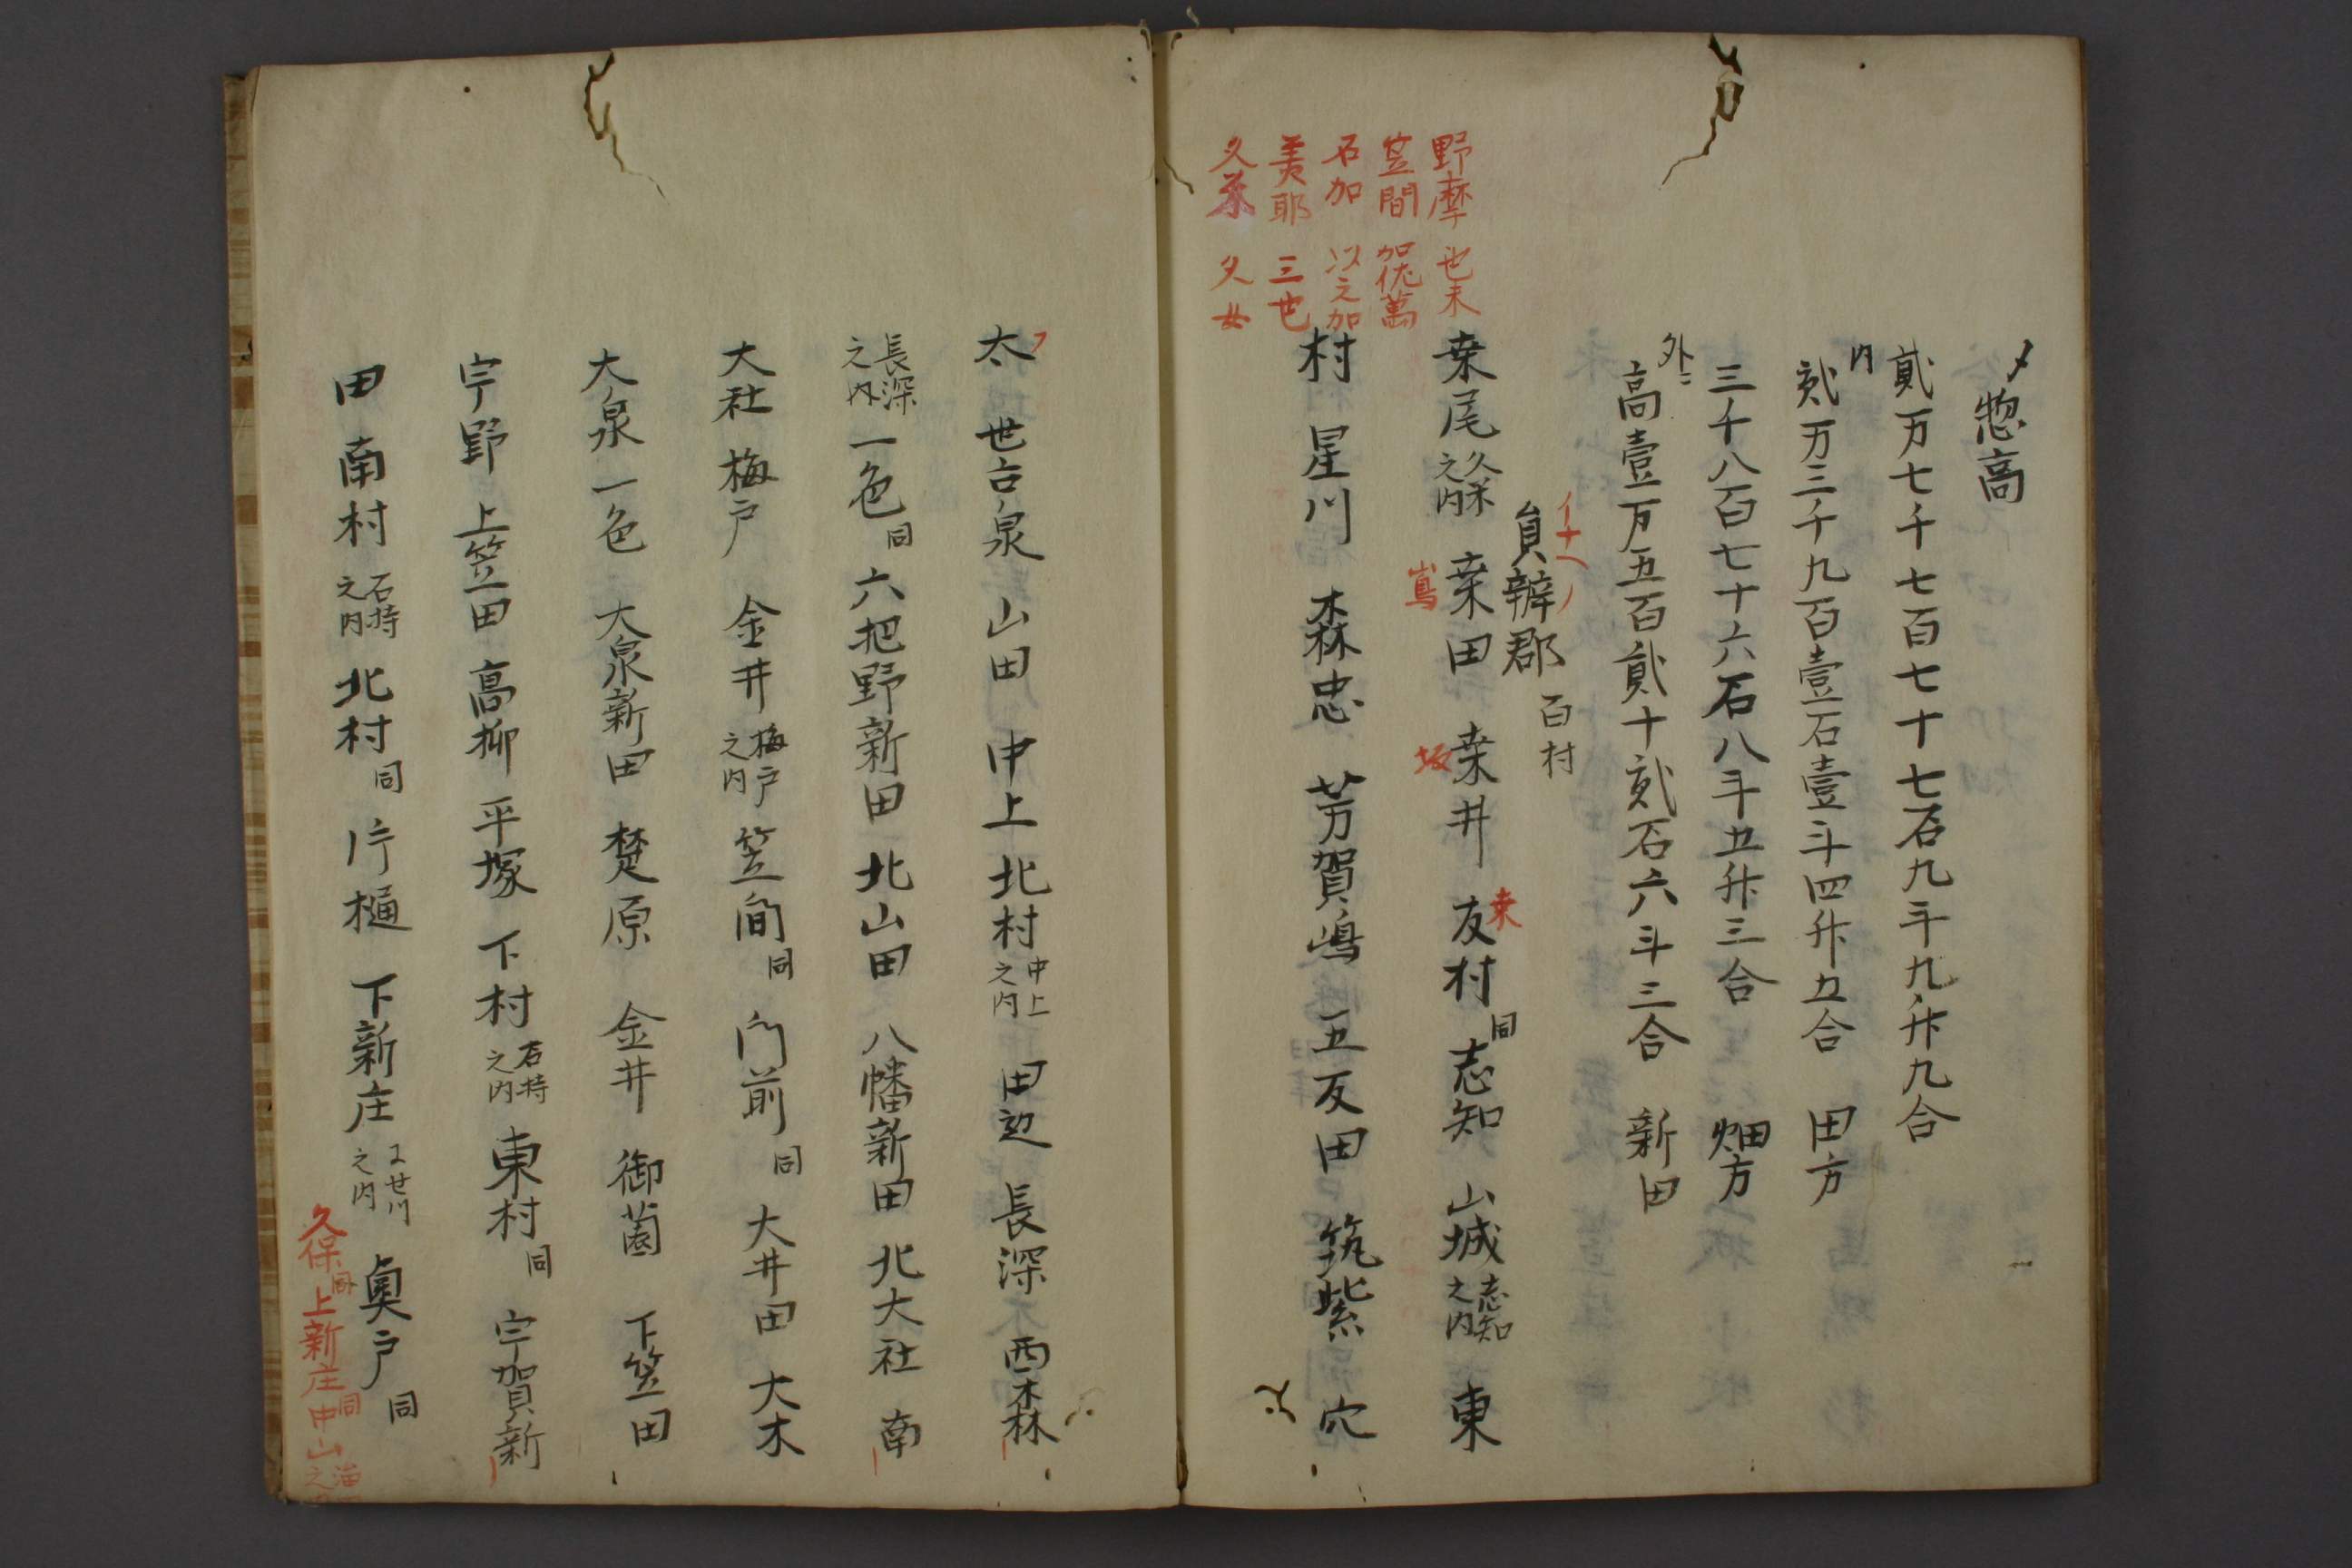 〆惣高
貮万七千七百七十七石九斗九升九合
内
貮万三千九百壹石壹斗四升五合 田方
三千八百七十六石八斗五升三合 畑方
外ニ
高壹万五百貮十貮石六斗三合 新田
イナヘノ
員辨郡 百村
野摩 也末
笠間 加佐萬
石加 以之加
美耶 三也
久米 久女
桒尾 久米之内 桒田 桒井 友村 同 志知 山城 志知之内 東
嶌
坂
桒
村 星川 森忠 芳賀嶋 五反田 筑紫 穴
太 世古泉 山田 中上 北村 中上之内 田辺 長深 西森
フ
長深之内 一色 同 六把野新田 北山田 八幡新田 北大社 南
大社 梅戸 金井 梅戸之内 笠間 同 门前 同 大井田 大木
大泉 一色 大泉新田 楚原 金井 御薗 下笠田
宇野 上笠田 高栁 平塚 下村 石持之内 東村 同 宇賀新
田 南村 石持之内 北村 同 片樋 下新庄 之内 奥戸 同
久保 同 上新庄 同 中山